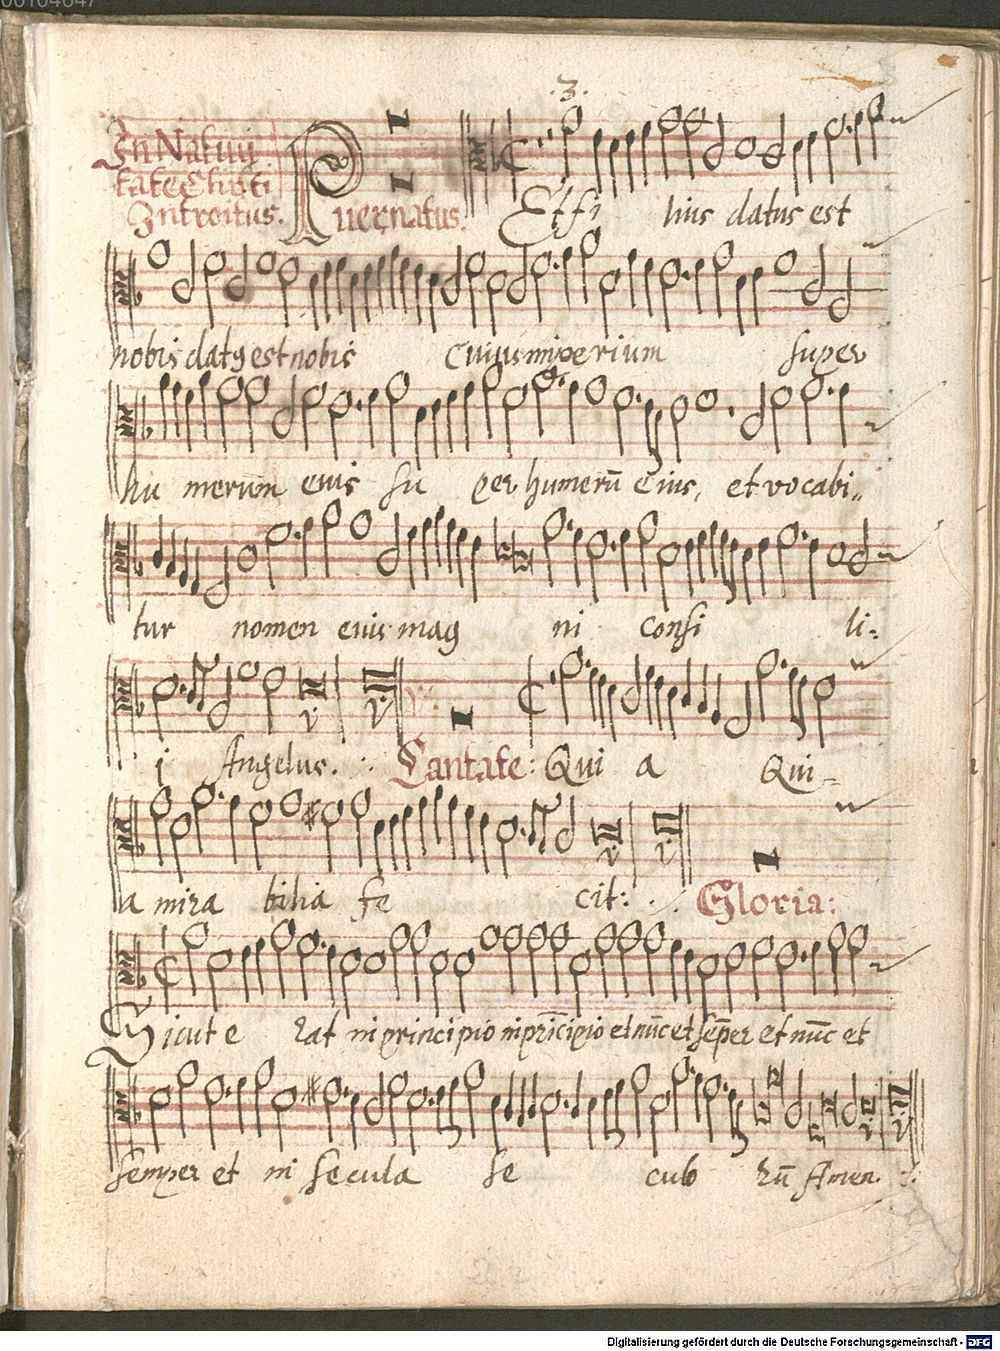 .3.
In Nativi
tate Christi
Introitus. Puer natus. Et fi lius datus est
nobis dat9 est nobis Cuius imperium super
hu merum eius su per humerū eius, et vocabi„
tur nomen eius mag ni consi li:
i Angelus. Cantate: Qui a Qui-
a mira bilia fe cit: Gloria:
Sicut e rat in principio in prīcipio et nūc et sēper et nūc et
semper et in secula se culo rū Amen.
Digitalisierung gefördert durch die Deutsche Forschungsgemeinschaft - DFG